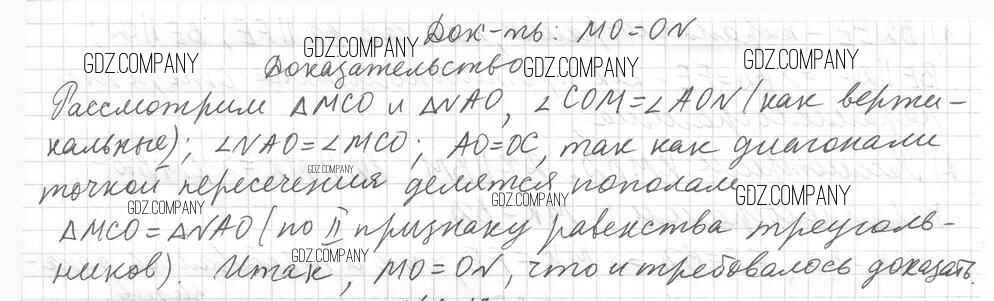 Док-ть: MO=ON
GDZ.COMPANY GDZ.COMPANY GDZ.COMPANY
Доказательство GDZ.COMPANY
Рассмотрим △MCO и △NAO, ∠COM=∠AON (как верти-
кальные); ∠NAO=∠MCO; AO=OC, так как диагонали
GDZ.COMPANY
точкой пересечения делятся пополам
GDZ.COMPANY GDZ.COMPANY GDZ.COMPANY
△MCO=△NAO (по II признаку равенства треуголь-
GDZ.COMPANY
ников). Итак, MO=ON, что и требовалось доказать.